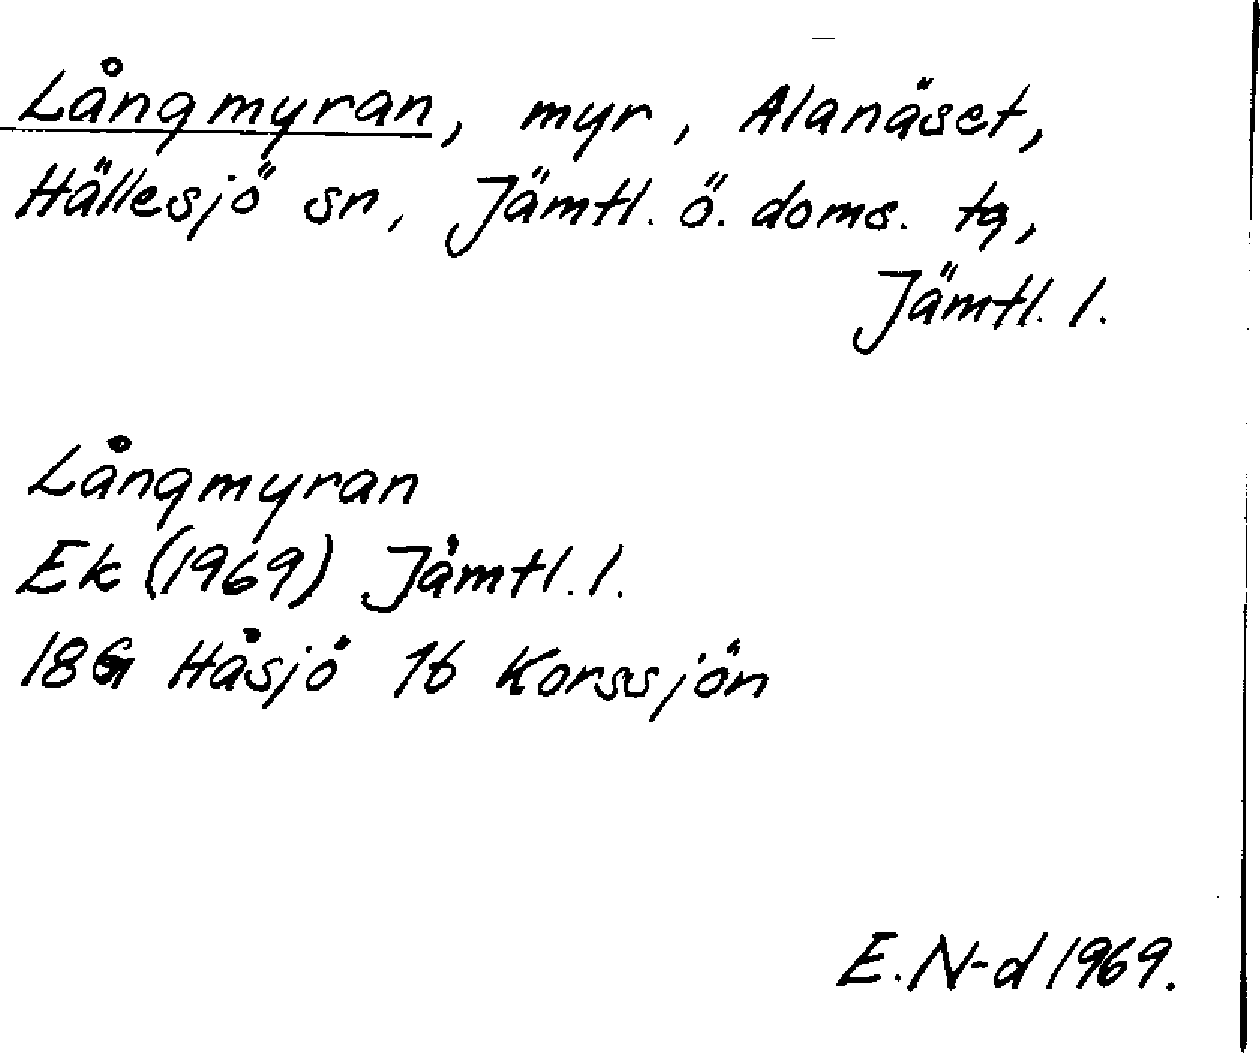 Långmyran, myr, Alanäset,
Hällesjö sn, Jämtl. ö. doms. tg,
Jämtl. l.
Långmyran
Ek (1969) Jämtl. l.
18G Håsjö 1b Korssjön
E. N-d 1969.